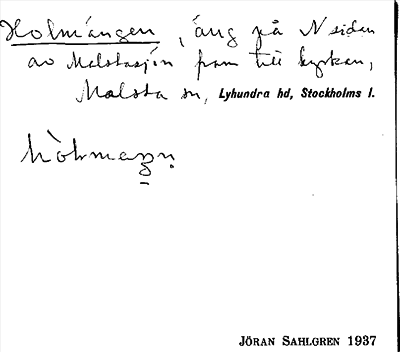 Holmängen, äng på N sidan
av Malstasjön fram till kyrkan,
Malsta sn, Lyhundra hd, Stockholms l.
JÖRAN SAHLGREN 1937